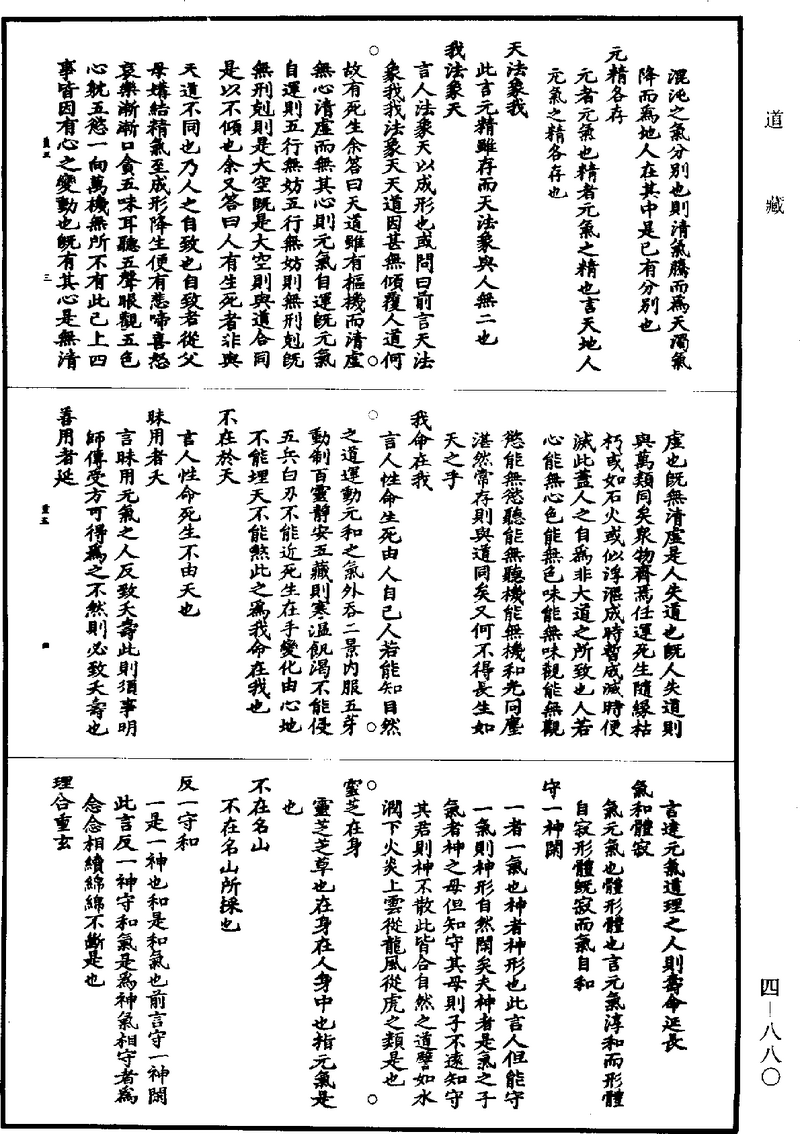 道藏
混沌之氣分別也則清氣騰而爲天濁氣
降而爲地人在其中是已有分別也
元精各存
元者元氣也精者元氣之精也言天地人
元氣之精各存也
天法象我
此言元精雖存而天法象與人無二也
我法象天
言人法象天以成形也或問曰前言天法
象我我法象天天道因甚無傾覆人道何
故有死生余答曰天道雖有樞機而清虛
無心清虛而無其心則元氣自運旣元氣
自運則五行無妨五行無妨則無刑剋旣
無刑剋則是大空旣是大空則與道合同
是以不傾也余又答曰人有生死者非與
天道不同也乃人之自致也自致者從父
母媾結精氣至成形降生便有悲啼喜怒
哀樂漸漸口貪五味耳聽五聲眼觀五色
心躭五慾一向萬機無所不有此已上四
事皆因有心之變動也旣有其心是無清
三
虛也旣無清虛是人失道也旣人失道則
與萬類同矣衆物齊焉任運死生隨緣枯
朽或如石火或似浮漚成時暫成滅時便
滅此蓋人之自爲非大道之所致也人若
心能無心色能無色味能無味觀能無觀
慾能無慾聽能無聽機能無機和光同塵
湛然常存則與道同矣又何不得長生如
天之乎
我命在我
言人性命生死由人自己人若能知自然
之道運動元和之氣外吞二景內服五芽
動制百靈靜安五藏則寒溫飢渴不能侵
五兵白刃不能近死生在手變化由心地
不能埋天不能煞此之爲我命在我也
不在於天
言人性命死生不由天也
昧用者夭
言昧用元氣之人反致夭壽此則須事明
師傳受方可得爲之不然則必致夭壽也
善用者延
四
言達元氣道理之人則壽命延長
氣和體寂
氣元氣也體形體也言元氣淳和而形體
自寂形體旣寂而氣自和
守一神閑
一者一氣也神者神形也此言人但能守
一氣則神形自然閑矣夫神者是氣之子
氣者神之母但知守其母則子不遠知守
其君則神不散此皆合自然之道譬如水
潤下火炎上雲從龍風從虎之類是也
靈芝在身
靈芝芝草也在身在人身中也指元氣是
也
不在名山
不在名山所採也
反一守和
一是一神也和是和氣也前言守一神閑
此言反一神守和氣是爲神氣相守者爲
念念相續綿綿不斷是也
理合重玄
四—八八〇